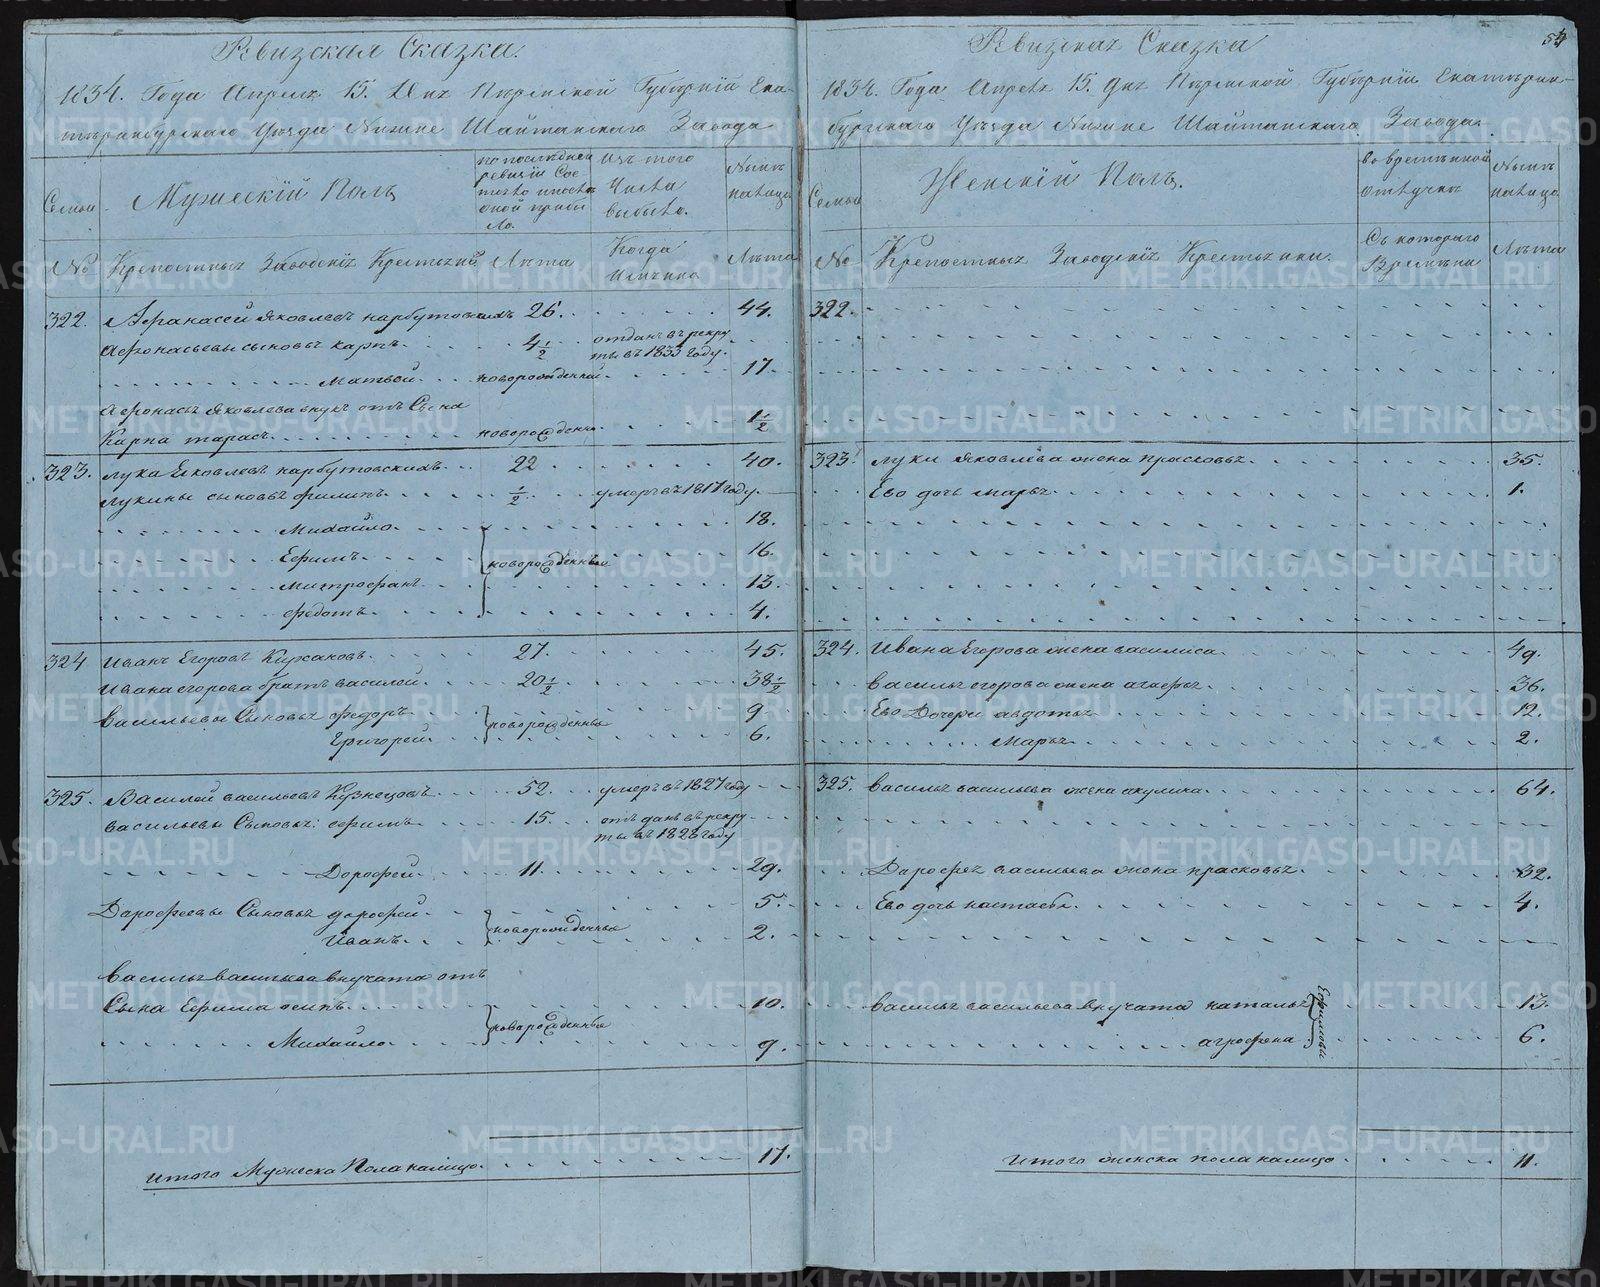 54
Ревизская Сказка.
1834. Года Апреля 15. Дня Пермской Губерніи Ека-
теринбургскаго Уезда Нижне Шайтанскаго Завода
Семьи
Мужескій Полъ
по последней ревизіи Сос
Изъ того Числа выбыло.
Ныне налицо
№
Крепостныхъ Заводскіхъ Крестьянъ
Лета
Когда Имянно
Лета
322. Афанасей Яковлевъ нарбутовскихъ 26. 44.
Афонасьевы сыновья карпъ 4½ отданъ в рекру
ты въ 1833 году.
Матвей новорожденной 17.
Афонасья Яковлева внукъ отъ Сына
Карпа тарасъ новорожденной 1½
323. лука Яковлевъ нарбутовскихъ 22 40.
лукины сыновья филипъ ½ умеръ в 1817 году
Михайло 18.
Ефимъ новорожденныя 16.
Митрофанъ 13.
Федотъ 4.
324 Иванъ Егоровъ 27. 45.
Ивана егорова братъ василей 20½ 38½
васильевы Сыновья федоръ новорожденныя 9
Григорей 6.
325. Василей васильевъ Кузнецовъ 52. умеръ въ 1827 году
васильевы Сыновья: ефимъ 15. отъданъ в рекру
ты въ 1828 году
Дорофей 11. 29.
Дорофеевы Сыновья дорофей новорожденныя 5.
Иванъ 2.
василья васильева внучата отъ
Сына Ефима осипъ новорожденныя 10.
Михайло 9.
итого Мужеска Пола налицо 17.
Ревизская Сказка
1834. Года Апреля 15. Дня Пермской Губерніи Екатерин-
бургскаго Уезда Нижне Шайтанскаго Завода.
Семьи
Женскій Полъ.
во временной отлучке
Ныне налицо
№
Крепостныхъ Заводскіхъ Крестьянки.
Съ котораго Времяни
Лета
322.
323. луки Яковлева жена прасковья 35.
Ево дочь марья 1.
324. Ивана Егорова жена василиса 49.
василья егорова жена агафья 36.
Ево Дочери авдотья 12.
Марья 2.
325. василья васильева жена акулина 64.
Дорофея васильева жена прасковья 32.
Ево дочь настасья 4.
василья васильева внучата наталья Ефимовы 13.
агрофена 6.
итого женска пола налицо 11.
METRIKI.GASO-URAL.RU